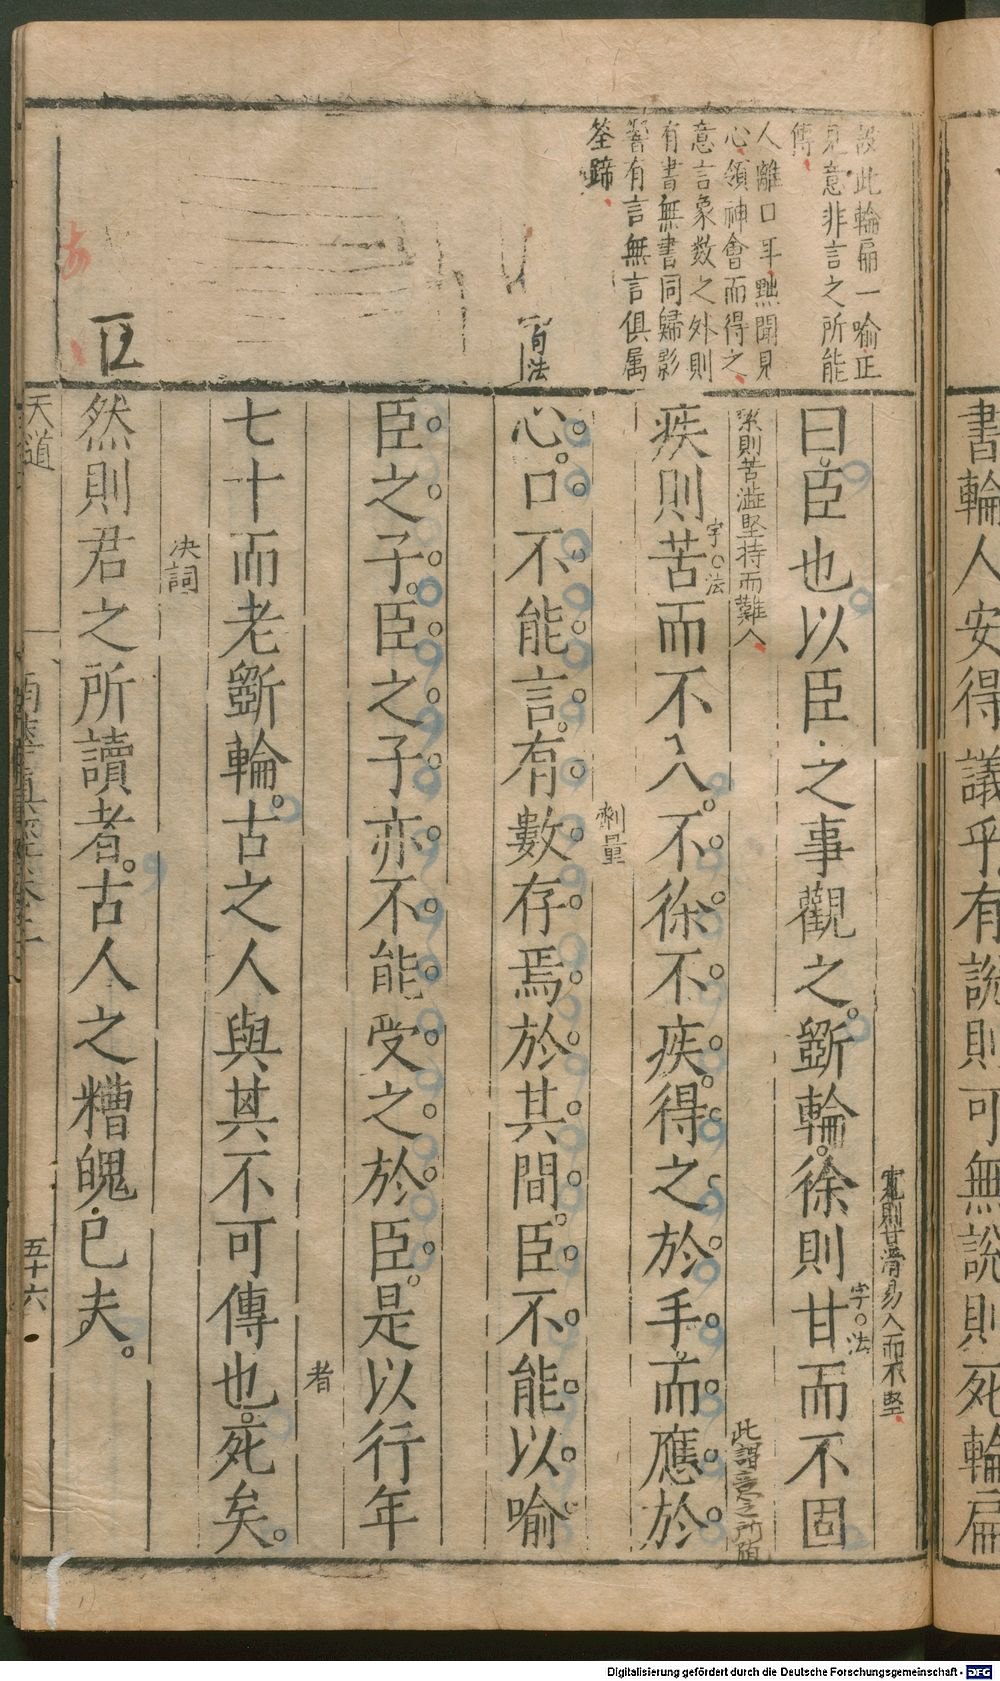 書輪人安得議乎有説則可無說則死輪扁
設此輪扁一喻正
見意非言之所能
傳
人離口耳黜聞見
心領神會而得之
意言象數之外則
有書無書同歸影
響有言無言俱属
筌蹄
寬則甘滑易入而不堅
曰臣也以臣之事觀之斵輪徐則甘而不固
字法
緊則苦澁堅持而難入
此謂意之所隨
疾則苦而不入不徐不疾得之於手而應於
字法
心口不能言有數存焉於其間臣不能以喻
劑量
句法
臣之子臣之子亦不能受之於臣是以行年
七十而老斵輪古之人與其不可傳也死矣
者
然則君之所讀者古人之糟魄已夫
决詞
天道
五十六
Digitalisierung gefördert durch die Deutsche Forschungsgemeinschaft - DFG